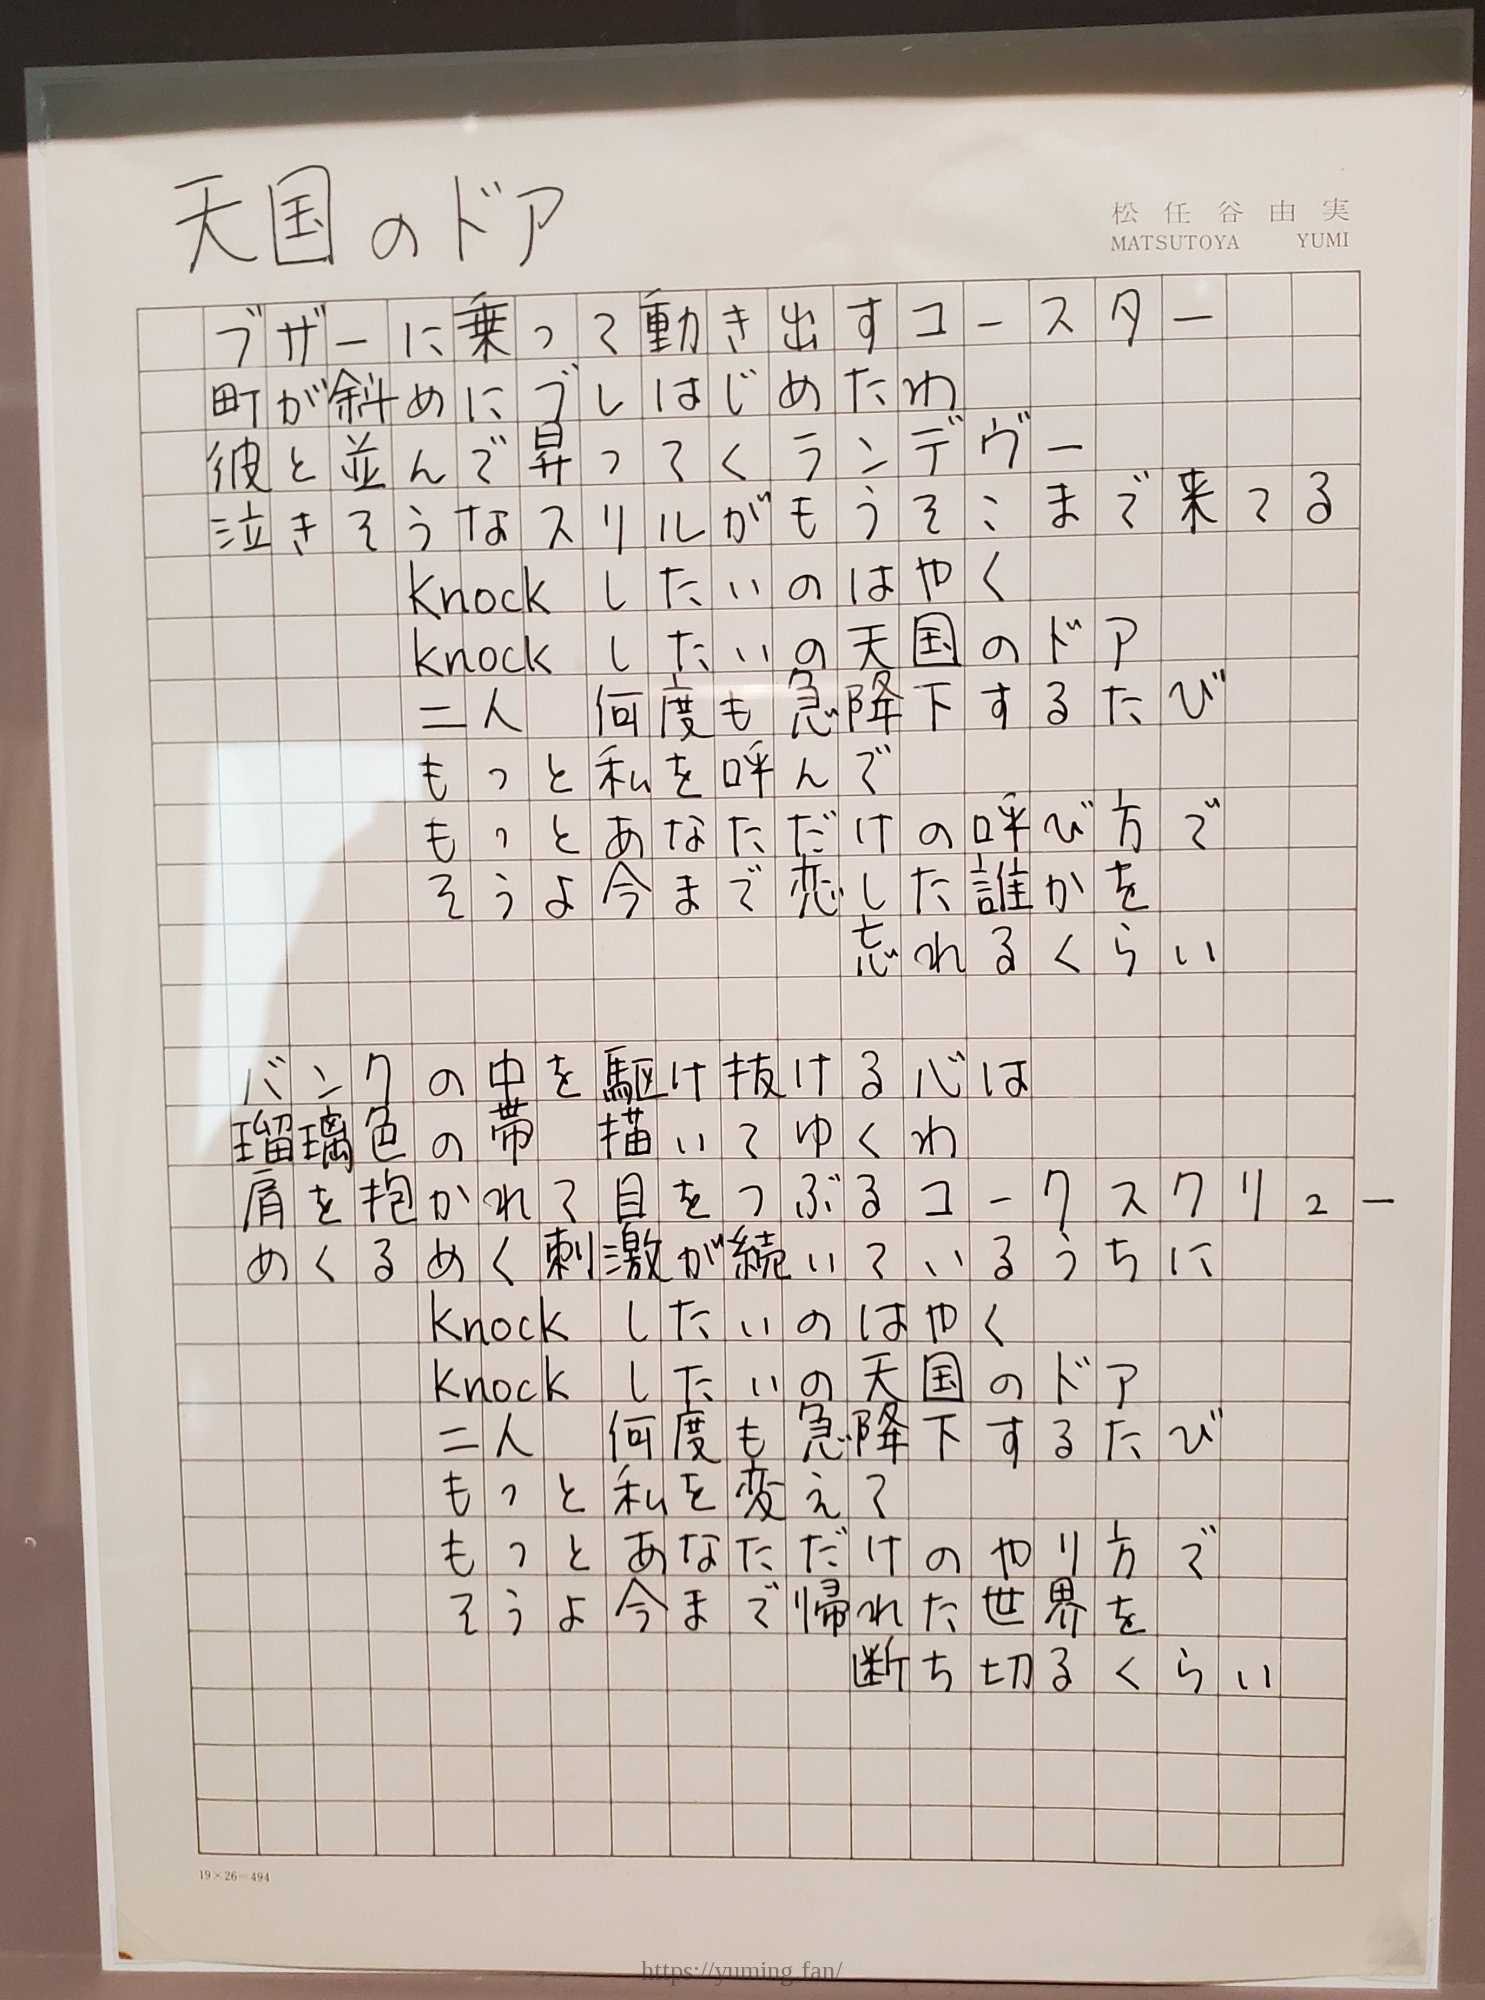 天国のドア
松任谷由実
MATSUTOYA YUMI
ブザーに乗って動き出すコースター
町が斜めにブレはじめたわ
彼と並んで昇ってくランデヴー
泣きそうなスリルがもうそこまで来てる
Knockしたいのはやく
Knockしたいの天国のドア
二人　何度も急降下するたび
もっと私を呼んで
もっとあなただけの呼び方で
そうよ今まで恋した誰かを
忘れるくらい
バンクの中を駆け抜ける心は
瑠璃色の帯　描いてゆくわ
肩を抱かれて目をつぶるコークスクリュー
めくるめく刺激が続いているうちに
Knockしたいのはやく
Knockしたいの天国のドア
二人　何度も急降下するたび
もっと私を変えて
もっとあなただけのやり方で
そうよ今まで帰れた世界を
断ち切るくらい
19×26＝494
https://yuming.fan/